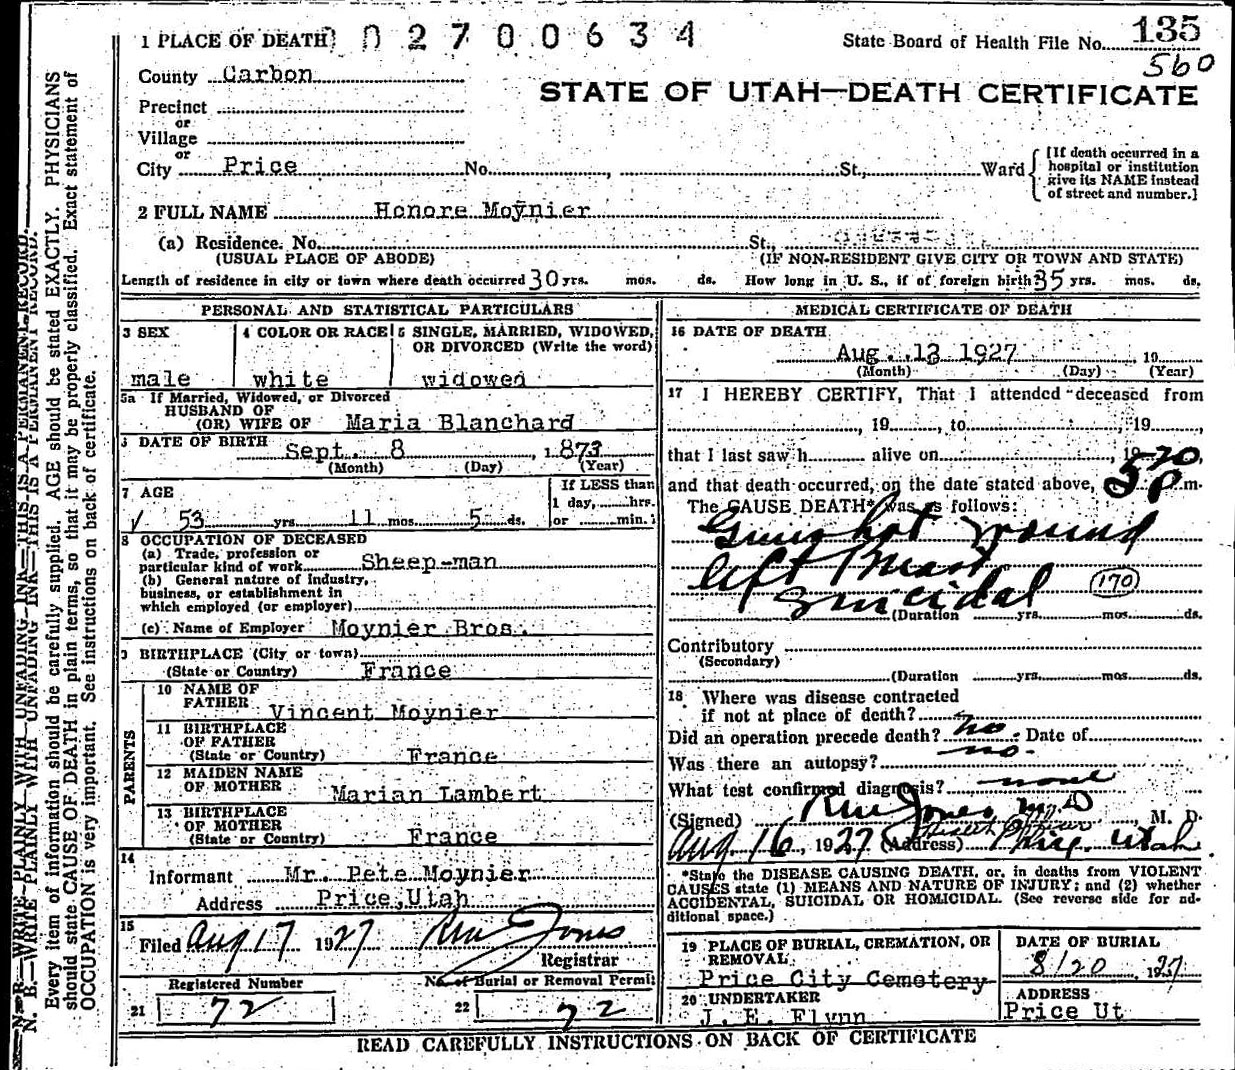 1 PLACE OF DEATH 0 2 7 0 0 6 3 4
State Board of Health File No. 135
560
County Carbon
STATE OF UTAH—DEATH CERTIFICATE
Precinct
or
Village
or
City Price No. , St., Ward
[If death occurred in a
hospital or institution
give its NAME instead
of street and number.]
2 FULL NAME Honore Moynier
(a) Residence. No. St.,
(USUAL PLACE OF ABODE) (IF NON-RESIDENT GIVE CITY OR TOWN AND STATE)
Length of residence in city or town where death occurred 30 yrs. mos. ds. How long in U. S., if of foreign birth? 35 yrs. mos. ds.
PERSONAL AND STATISTICAL PARTICULARS
3 SEX 4 COLOR OR RACE 5 SINGLE, MARRIED, WIDOWED,
OR DIVORCED (Write the word)
male white widowed
5a If Married, Widowed, or Divorced
HUSBAND OF
(OR) WIFE OF Maria Blanchard
6 DATE OF BIRTH Sept. 8 , 1873
(Month) (Day) (Year)
7 AGE If LESS than
1 day, hrs.
53 yrs. 11 mos. 5 ds. or min.
8 OCCUPATION OF DECEASED
(a) Trade, profession or
particular kind of work Sheep-man
(b) General nature of industry,
business, or establishment in
which employed (or employer)
(c) Name of Employer Moynier Bros.
9 BIRTHPLACE (City or town)
(State or Country) France
PARENTS
10 NAME OF
FATHER Vincent Moynier
11 BIRTHPLACE
OF FATHER
(State or Country) France
12 MAIDEN NAME
OF MOTHER Marian Lambert
13 BIRTHPLACE
OF MOTHER
(State or Country) France
14
Informant Mr. Pete Moynier
Address Price, Utah
15
Filed Aug 17 1927
Registrar
Registered Number No. of Burial or Removal Permit
21 72 22 72
MEDICAL CERTIFICATE OF DEATH
16 DATE OF DEATH
Aug. 13 1927 , 19
(Month) (Day) (Year)
17 I HEREBY CERTIFY, That I attended deceased from
, 19 , to , 19 ,
that I last saw h alive on , 19 ,
and that death occurred, on the date stated above, 5 20 P m.
The CAUSE DEATH* was as follows:
Gunshot wound
left breast
Suicidal 170
(Duration yrs. mos. ds.
Contributory
(Secondary)
(Duration yrs. mos. ds.
18 Where was disease contracted
if not at place of death?
Did an operation precede death? no. Date of
Was there an autopsy? no.
What test confirmed diagnosis? none
(Signed) Jones M.D , M. D.
Aug 16, 1927 (Address) Price, Utah.
*State the DISEASE CAUSING DEATH, or, in deaths from VIOLENT
CAUSES state (1) MEANS AND NATURE OF INJURY; and (2) whether
ACCIDENTAL, SUICIDAL OR HOMICIDAL. (See reverse side for ad-
ditional space.)
19 PLACE OF BURIAL, CREMATION, OR
REMOVAL
Price City Cemetery
DATE OF BURIAL
8/20 , 1927
20 UNDERTAKER
J. E. Flynn
ADDRESS
Price Ut
READ CAREFULLY INSTRUCTIONS ON BACK OF CERTIFICATE
N. B.—WRITE PLAINLY WITH UNFADING INK—THIS IS A PERMANENT RECORD.
N. B.—WRITE PLAINLY WITH UNFADING INK—THIS IS A PERMANENT RECORD.
Every item of information should be carefully supplied. AGE should be stated EXACTLY. PHYSICIANS
should state CAUSE OF DEATH in plain terms, so that it may be properly classified. Exact statement of
OCCUPATION is very important. See instructions on back of certificate.